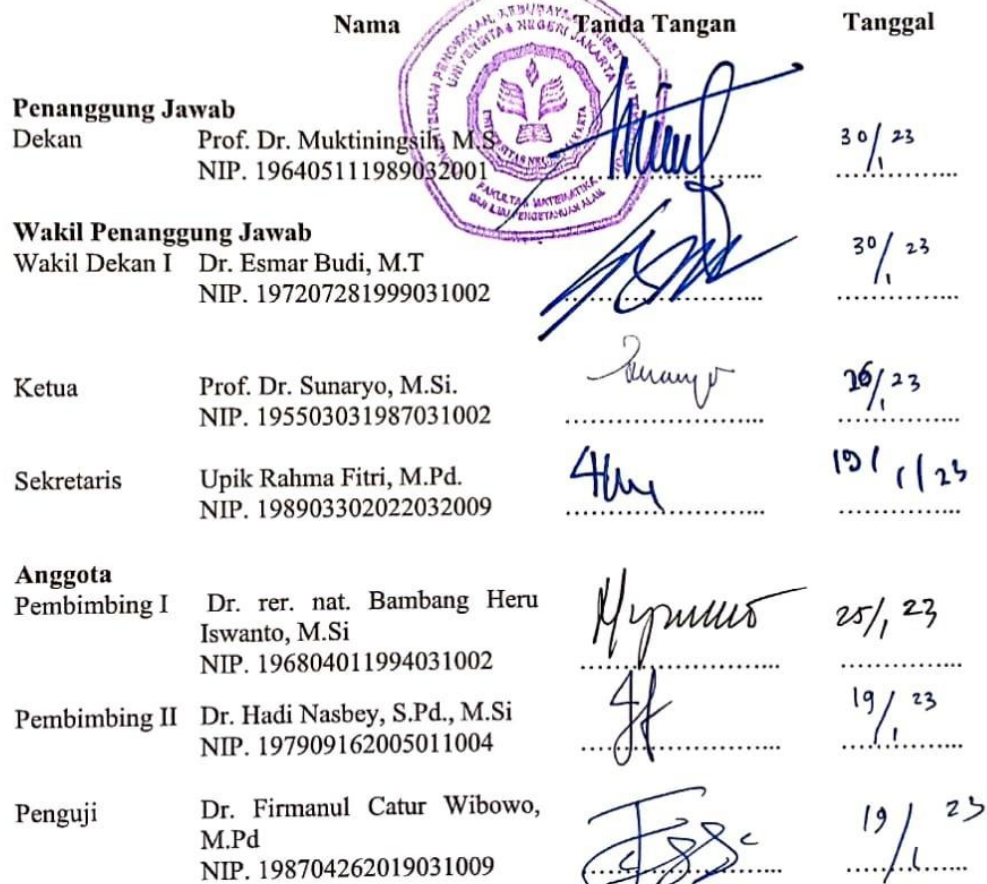 Nama Tanda Tangan Tanggal
Penanggung Jawab
Dekan Prof. Dr. Muktiningsih, M.S
NIP. 196405111989032001
30/1 23
Wakil Penanggung Jawab
Wakil Dekan I Dr. Esmar Budi, M.T
NIP. 197207281999031002
30/1 23
Ketua Prof. Dr. Sunaryo, M.Si.
NIP. 195503031987031002
26/1 23
Sekretaris Upik Rahma Fitri, M.Pd.
NIP. 198903302022032009
19/1/23
Anggota
Pembimbing I Dr. rer. nat. Bambang Heru
Iswanto, M.Si
NIP. 196804011994031002
25/1 23
Pembimbing II Dr. Hadi Nasbey, S.Pd., M.Si
NIP. 197909162005011004
19/1 23
Penguji Dr. Firmanul Catur Wibowo,
M.Pd
NIP. 198704262019031009
19/1 23
UNIVERSITAS NEGERI JAKARTA
FAKULTAS MATEMATIKA
DAN ILMU PENGETAHUAN ALAM